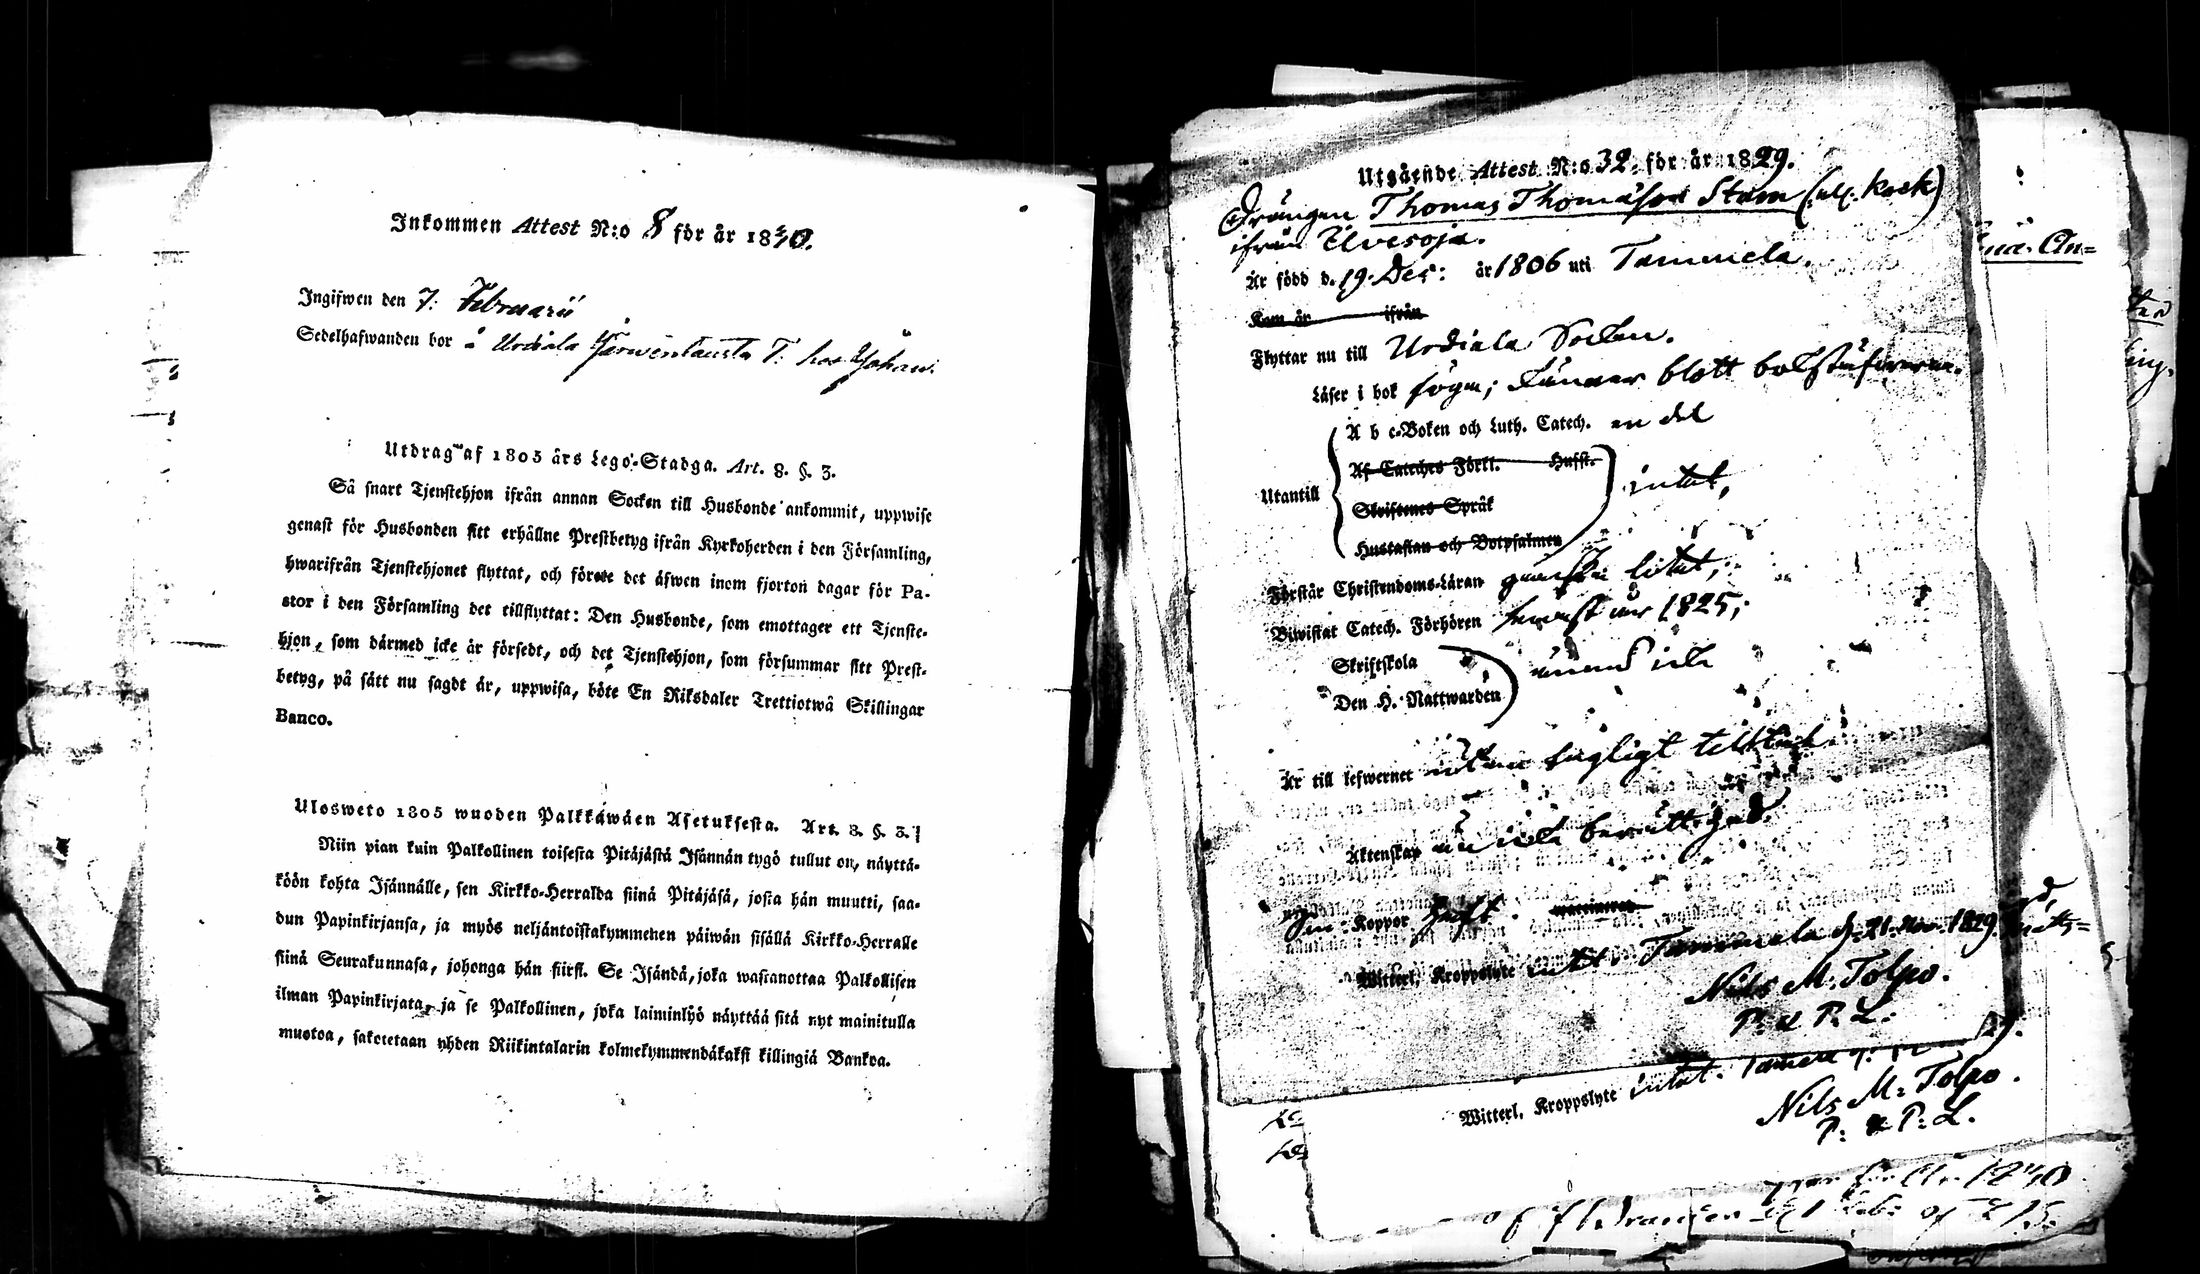 Inkommen Attest N:o 8 för år 1830.
Ingifwen den 7: Februarii
Sedelhafwanden bor å Urdiala Järwentausta T: hos Johan.
Utdrag af 1805 års Lego-Stadga. Art. 8. §. 3.
Så snart Tjenstehjon ifrån annan Socken till Husbonde ankommit, uppwise
genast för Husbonden sitt erhållne Prestbetyg ifrån Kyrkoherden i den Församling,
hwarifrån Tjenstehjonet flyttat, och förete det äfwen inom fjorton dagar för Pa-
stor i den Församling det tillflyttat: Den Husbonde, som emottager ett Tjenste-
hjon, som därmed icke är försedt, och det Tjenstehjon, som försummar sitt Prest-
betyg, på sätt nu sagdt är, uppwisa, böte En Riksdaler Trettiotwå Skillingar
Banco.
Ulosweto 1805 wuoden Palkkawäen Asetuksesta. Art. 8. §. 3.
Niin pian kuin Palkollinen toisesta Pitäjästä Isännän tygö tullut on, näyttä-
köön kohta Isännälle, sen Kirkko-Herralda siinä Pitäjäsä, josta hän muutti, saa-
dun Papinkirjansa, ja myös neljäntoistakymmenen päiwän sisällä Kirkko-Herralle
siinä Seurakunnasa, johonga hän siirsi. Se Isändä, joka wastanottaa Palkollisen
ilman Papinkirjata, ja se Palkollinen, joka laiminlyö näyttää sitä nyt mainitulla
muotoa, sakotetaan yhden Riikintalarin kolmekymmendäkaksi killingiä Bankoa.
Utgående Attest N:o 32. för år 1829.
Drängen Thomas Thomasson Stam (al. Kock)
ifrån Uvesoja.
Är född d. 19. Dec: år 1806 uti Tammela.
Kom år ifrån
Flyttar nu till Urdiala Socken.
Läser i bok känner blott bokstäfwerna.
A b c-Boken och Luth. Catech. en del
Af Cateches Förkl. Hufst.
Utantill intet,
Skriftenes Språk
Hustaflan och Botpsalmen
Förstår Christendoms-Läran ganska litet;
Biwistat Catech. Förhören senast år 1825;
Skriftskola
Den H. Nattwarden
Är till lefwernet fogligt
Äktenskap berättigad.
Koppor haft.
Witterl. Kroppslyte intet. Tammela d. 21. Nov. 1829
Nils M: Tolpo.
P: &amp; P: L.
Witterl. Kroppslyte intet.
Nils M: Tolpo.
P: &amp; P: L.